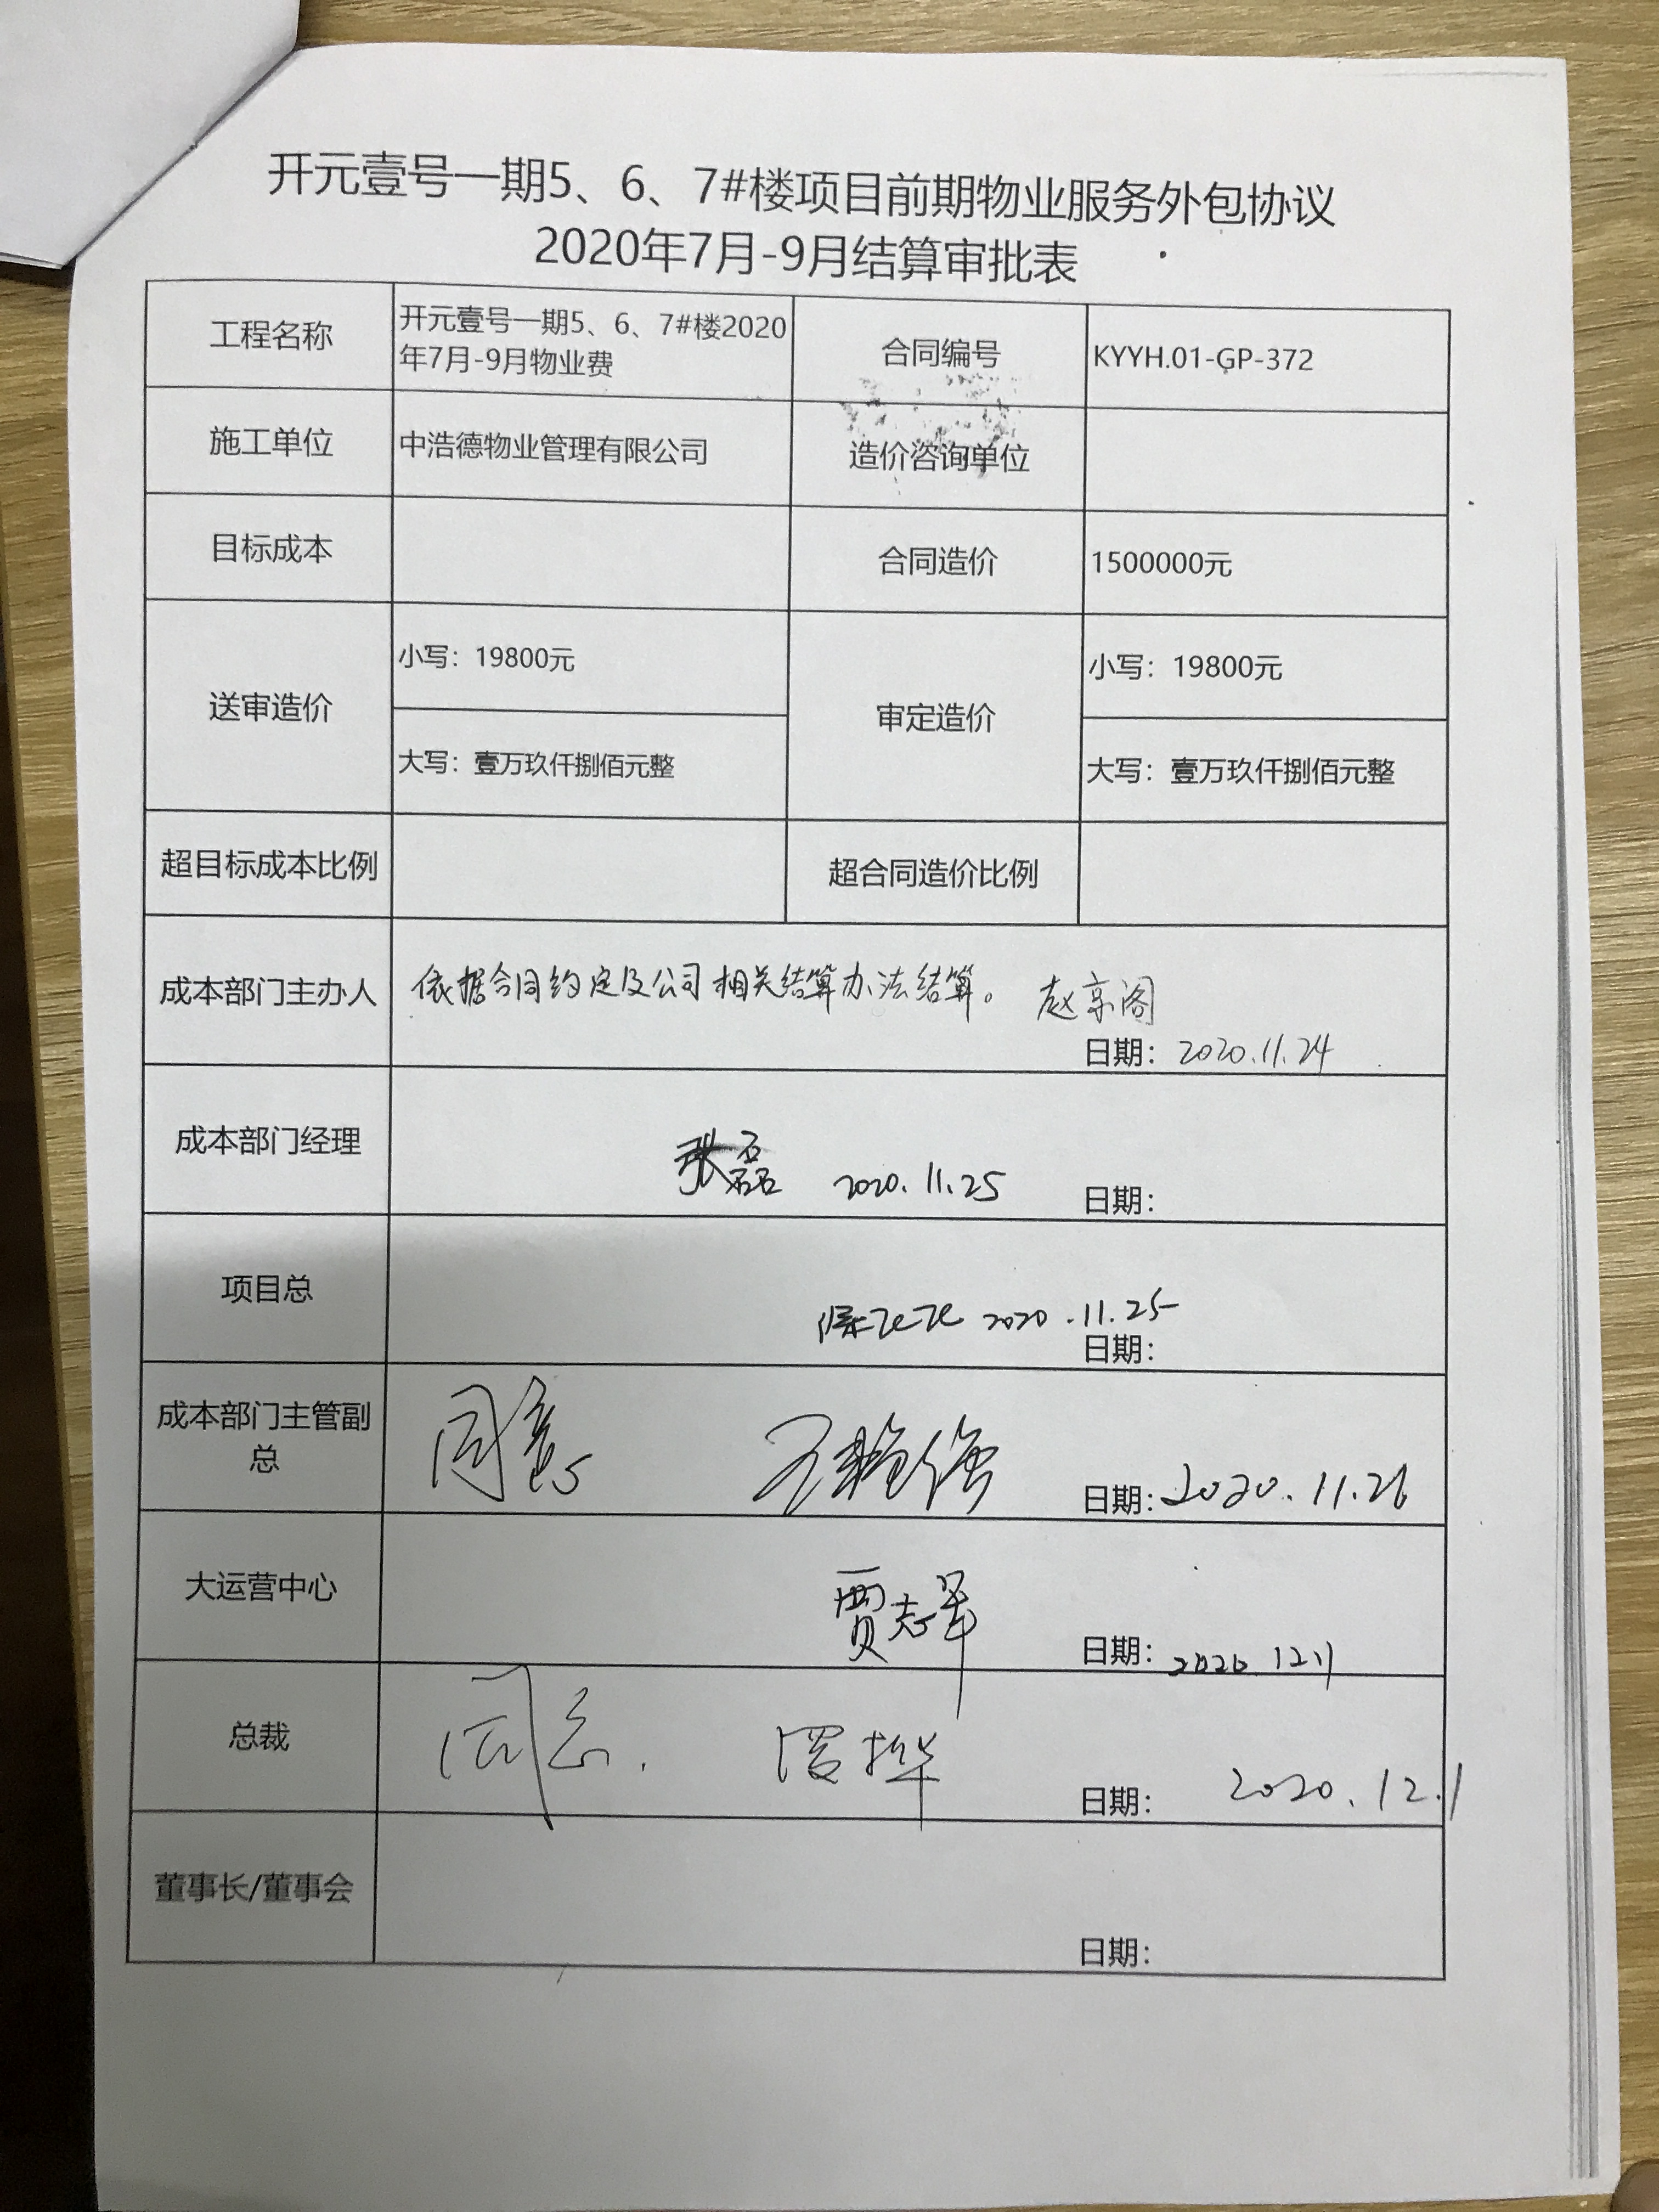 开元壹号一期5、6、7#楼项目前期物业服务外包协议
2020年7月-9月结算审批表
工程名称
开元壹号一期5、6、7#楼2020
年7月-9月物业费
合同编号
KYYH.01-GP-372
施工单位
中浩德物业管理有限公司
造价咨询单位
目标成本
合同造价
1500000元
送审造价
小写：19800元
大写：壹万玖仟捌佰元整
审定造价
小写：19800元
大写：壹万玖仟捌佰元整
超目标成本比例
超合同造价比例
成本部门主办人
依据合同约定及公司相关结算办法结算。 赵京阁
日期：2020.11.24
成本部门经理
张磊 2020.11.25
日期：
项目总
2020.11.25
日期：
成本部门主管副
总
同意
日期：2020.11.26
大运营中心
贾志军
日期：2020.12.1
总裁
同意.
日期： 2020.12.1
董事长/董事会
日期：